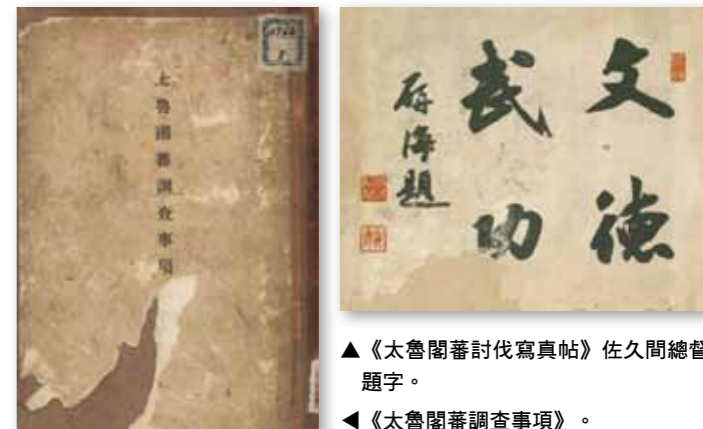 太魯閣蕃調查事項
文德
武功
研海題
▲《太魯閣蕃討伐寫真帖》佐久間總督
題字。
◀《太魯閣蕃調查事項》。